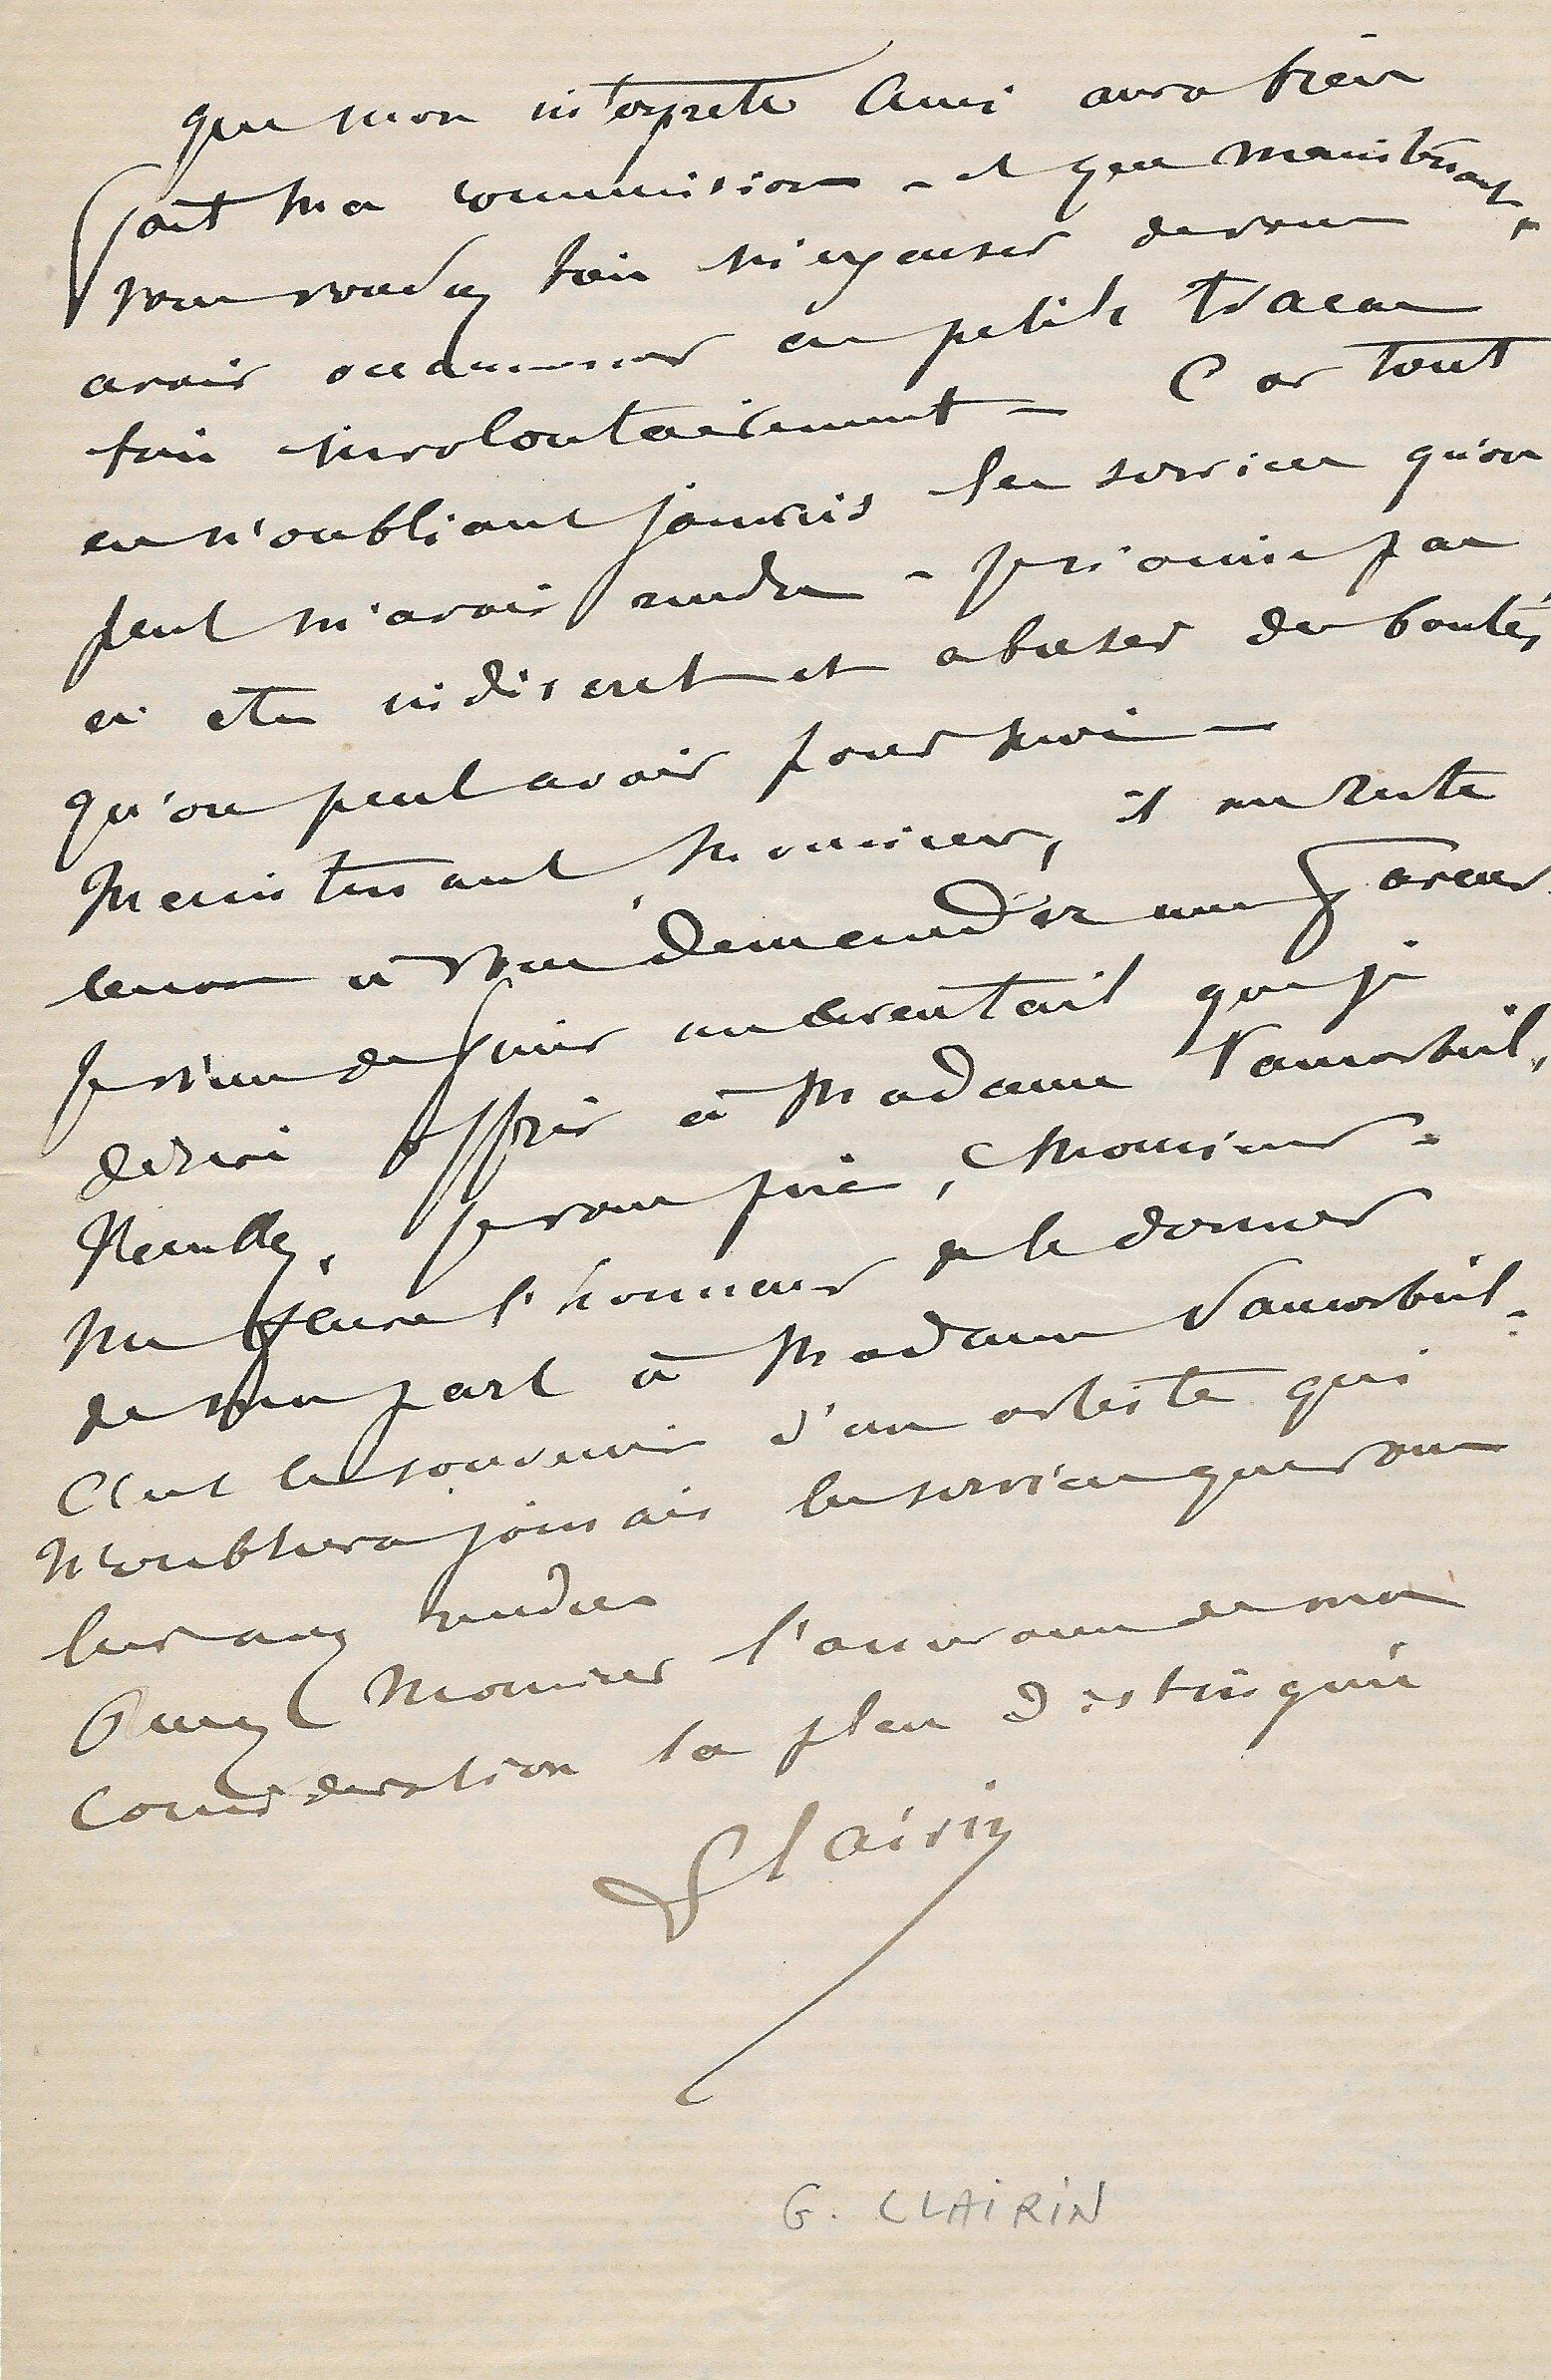 que mon interprete ami aura bien
fait ma commission - et que maintenant,
vous voudrez bien m'excuser de vous
avoir occasionner ces petits tracas
bien involontairement - Car tout
en n'oubliant jamais les services qu'on
peut m'avoir rendu - je n'aime pas
etre indiscret et abuser des bontés
qu'on peut avoir pour moi -
Maintenant, Monsieur, il me reste
encore à vous demander une faveur.
Je viens de finir un eventail que je
desirai offrir à Madame Vaucorbeil,
Veuillez, je vous prie, Monsieur -
me faire l'honneur de le donner
de ma part à Madame Vaucorbeil -
C'est le souvenir d'un artiste qui
n'oubliera jamais les services que vous
lui avez rendus
Agreez Monsieur l'assurance de ma
consideration la plus distinguée
Clairin
G. CLAIRIN